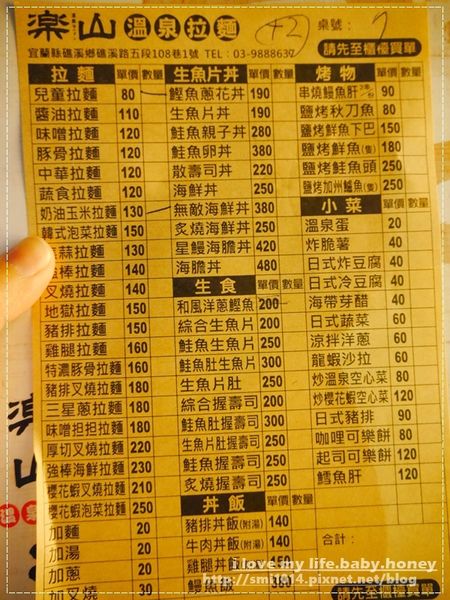 楽山 溫泉拉麵 +2 桌號: 7
宜蘭縣礁溪鄉礁溪路五段108巷1號 TEL:03-9888637
請先至櫃檯買單
拉麵 單價 數量
兒童拉麵 80
醬油拉麵 110
味噌拉麵 120
豚骨拉麵 120
中華拉麵 120
蔬食拉麵 120
奶油玉米拉麵 130
韓式泡菜拉麵 150
蒜拉麵 130
棒拉麵 140
叉燒拉麵 140
地獄拉麵 150
豬排拉麵 150
雞腿拉麵 160
特濃豚骨拉麵 160
豬排叉燒拉麵 180
三星蔥拉麵 180
味噌担担拉麵 180
厚切叉燒拉麵 220
強棒海鮮拉麵 230
櫻花蝦叉燒拉麵 210
櫻花蝦泡菜拉麵 250
加麵 20
加湯 20
加蔥 20
加叉燒 30
生魚片丼 單價 數量
鰹魚蔥花丼 190
生魚片丼 190
鮭魚親子丼 280
鮭魚卵丼 380
散壽司丼 220
海鮮丼 250
無敵海鮮丼 380
炙燒海鮮丼 250
星鰻海膽丼 420
海膽丼 480
生食 單價 數量
和風洋蔥鰹魚 200
綜合生魚片 200
鮭魚生魚片 200
鮭魚肚生魚片 300
生魚片肚 250
綜合握壽司 200
鮭魚肚握壽司 300
生魚片肚握壽司 250
鮭魚握壽司 250
炙燒握壽司 250
丼飯 單價 數量
豬排丼飯(附湯) 140
牛肉丼飯(附湯) 140
雞腿丼飯(附湯) 150
鰻魚飯
烤物 單價 數量
串燒鰻魚肝 90
鹽烤秋刀魚 80
鹽烤鮮魚下巴 150
鹽烤鮮魚(隻) 180
鹽烤鮭魚頭 250
鹽烤加州鱸魚(隻) 250
小菜 單價 數量
溫泉蛋 20
炸脆薯 40
日式炸豆腐 40
日式冷豆腐 40
海帶芽醋 40
日式蔬菜 60
涼拌洋蔥 60
龍蝦沙拉 60
炒溫泉空心菜 80
炒櫻花蝦空心菜 120
日式豬排 90
咖哩可樂餅 80
起司可樂餅 120
鱈魚肝 120
合計:
請先至櫃檯買單
i love my life.baby.honey
http://smh014.pixnet.net/blog